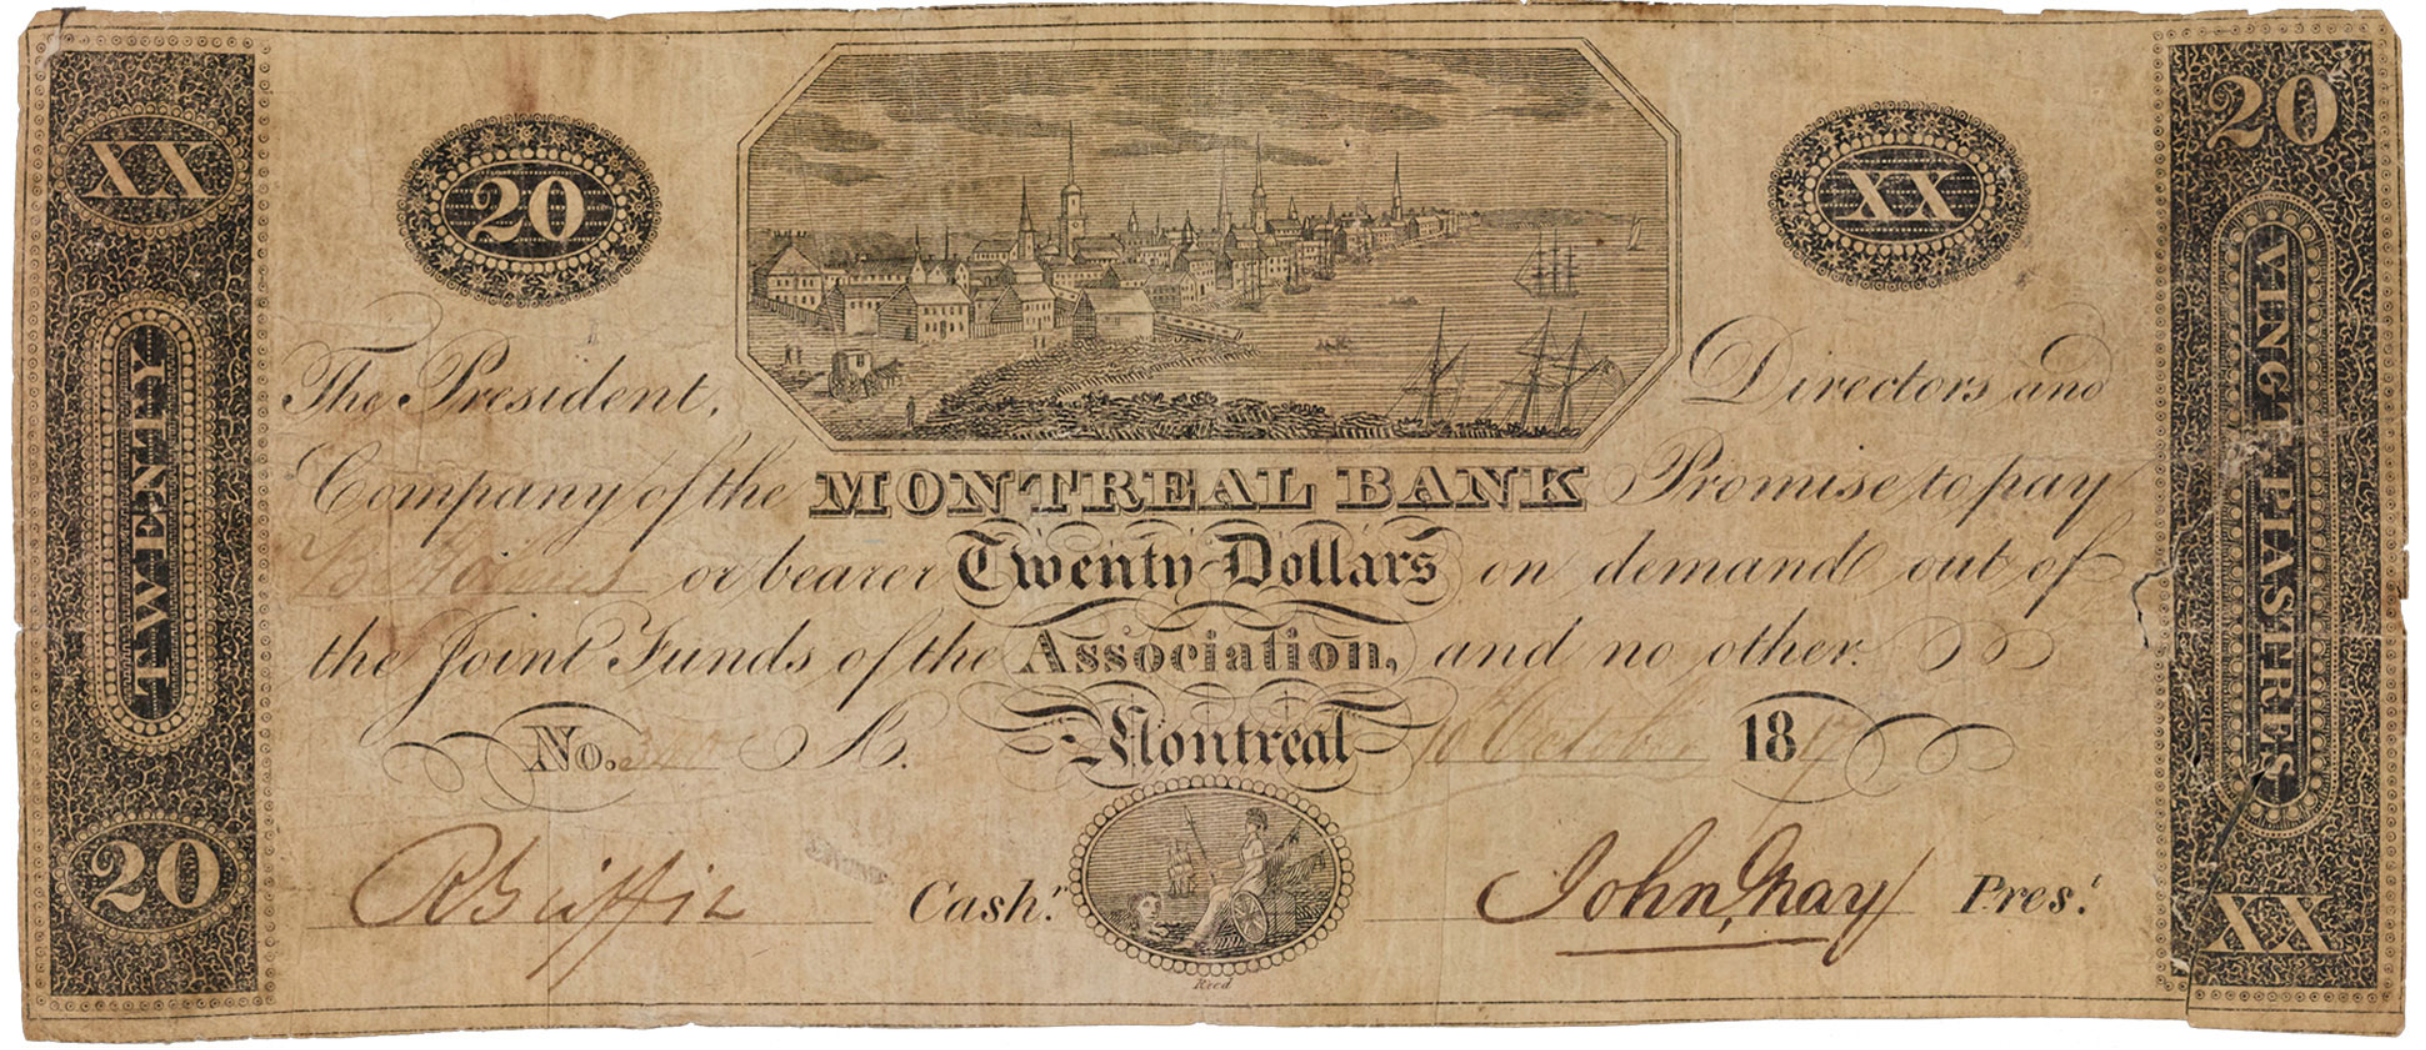 XX
TWENTY
20
20
XX
20
VINGT PIASTRES
XX
The President, Directors and
Company of the MONTREAL BANK Promise to pay
or bearer Twenty Dollars on demand out of
the Joint Funds of the Association, and no other.
No. A. Montreal 10 October 1817
Griffin Cash.r John Gray Pres.t
Reed